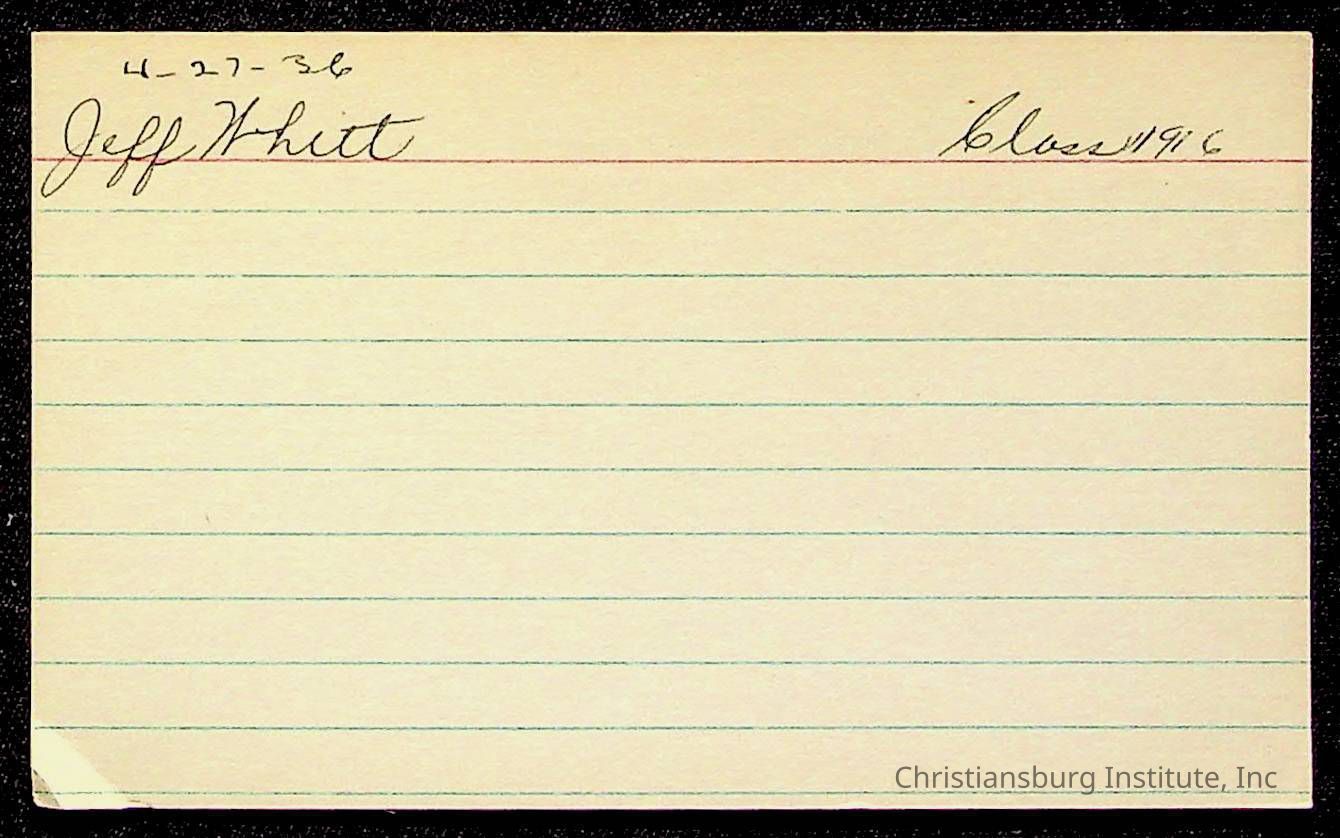 4-27-36
Jeff Whitt Class 1916
Christiansburg Institute, Inc